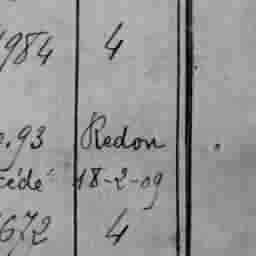 1984 4
0.93 Redon
cédé 18-2-09
672 4